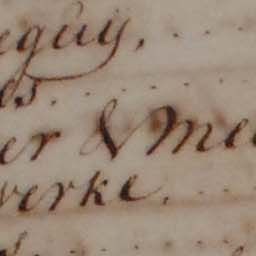 eguy,...
es......
er & Me
verke,...